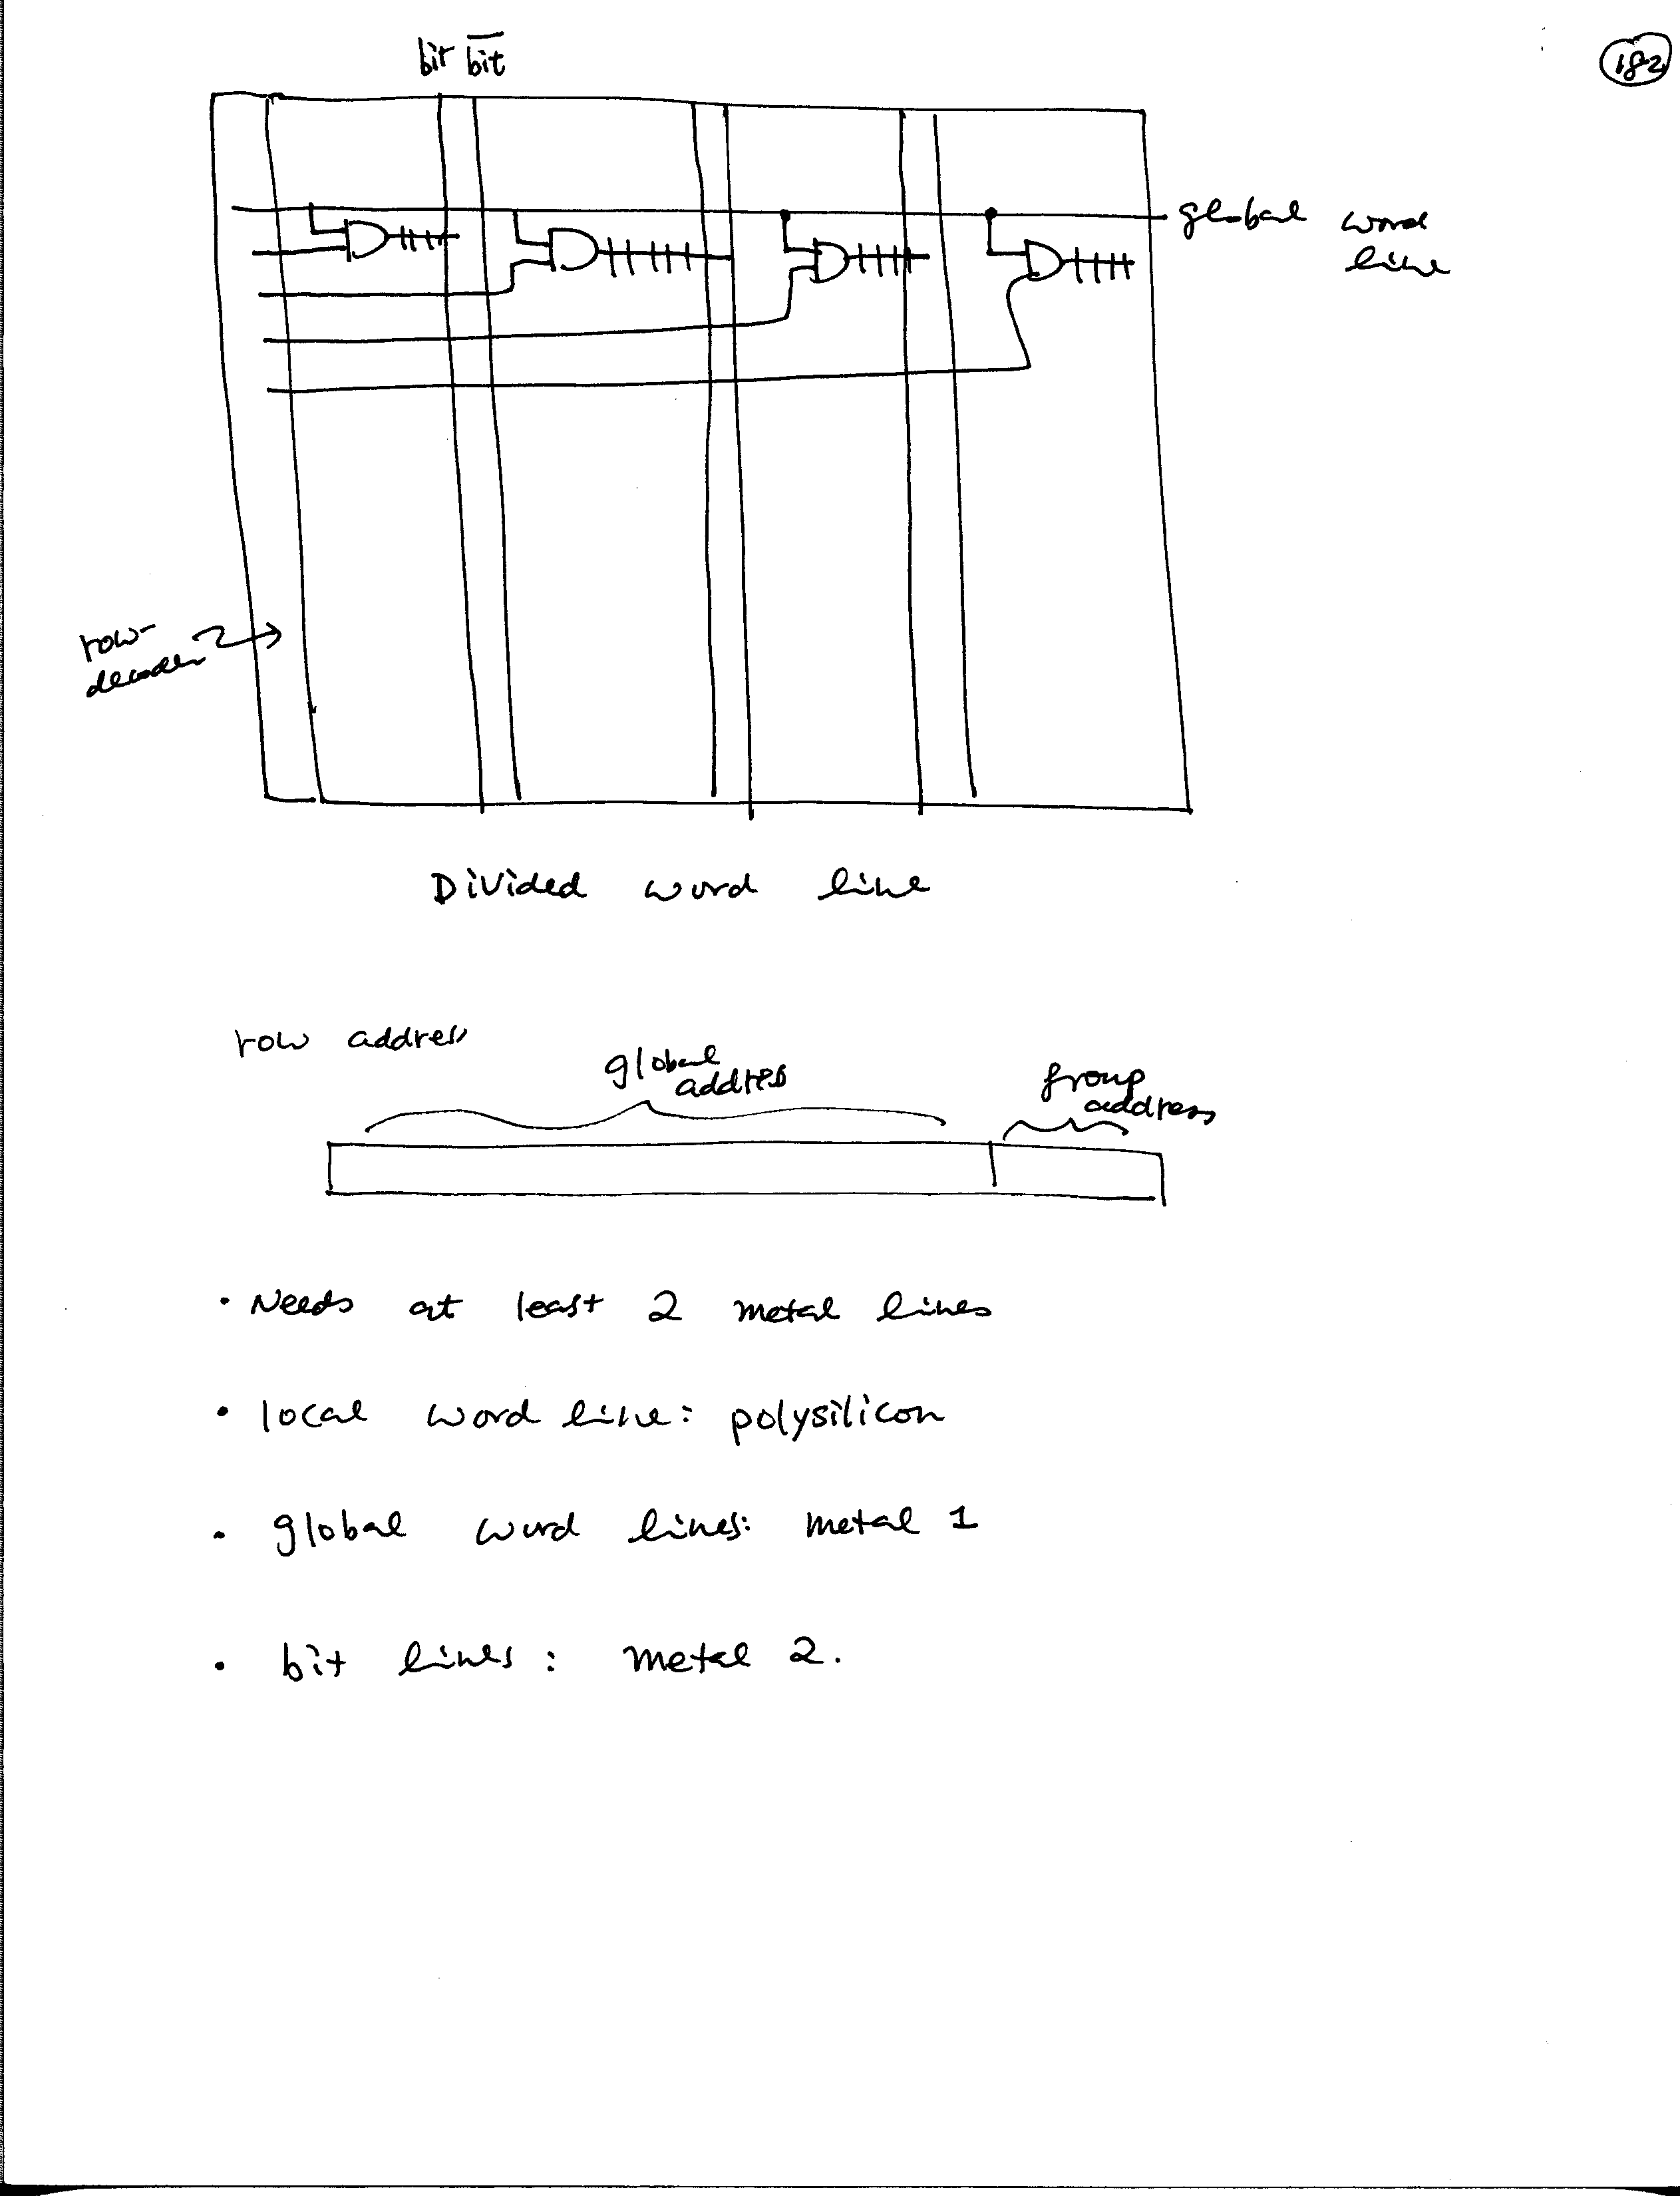 182
bit b̅i̅t̅
global word
line
row-
decoder
Divided word line
row address
global
address
group
address
• Needs at least 2 metal lines
• local word line: polysilicon
• global word lines: metal 1
• bit lines: metal 2.